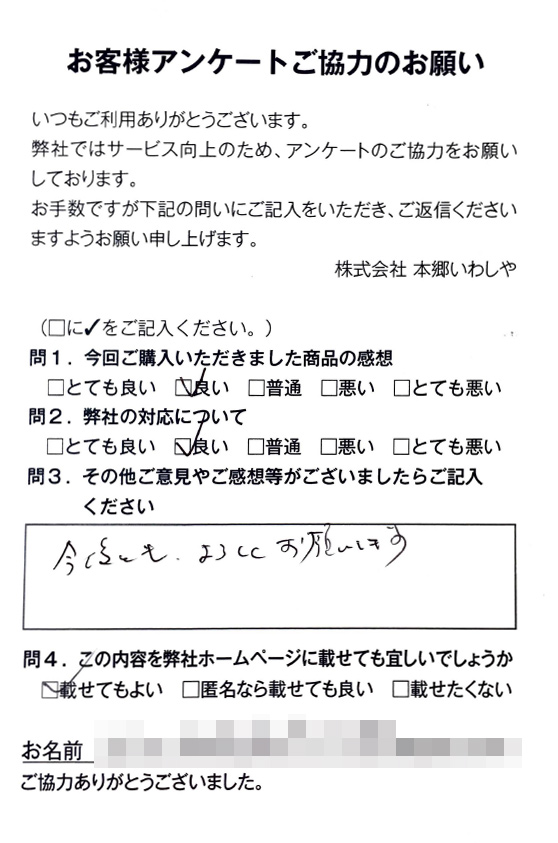 お客様アンケートご協力のお願い
いつもご利用ありがとうございます。
弊社ではサービス向上のため、アンケートのご協力をお願い
しております。
お手数ですが下記の問いにご記入をいただき、ご返信ください
ますようお願い申し上げます。
株式会社 本郷いわしや
（□に✓をご記入ください。）
問1．今回ご購入いただきました商品の感想
□とても良い ☑良い □普通 □悪い □とても悪い
問2．弊社の対応について
□とても良い ☑良い □普通 □悪い □とても悪い
問3．その他ご意見やご感想等がございましたらご記入
ください
今後とも、よろしくお願いします
問4．この内容を弊社ホームページに載せても宜しいでしょうか
☑載せてもよい □匿名なら載せても良い □載せたくない
お名前
ご協力ありがとうございました。